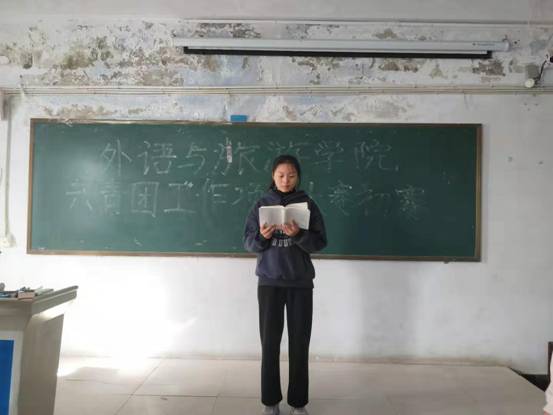 外语与旅游学院
六百团工作 赛初赛